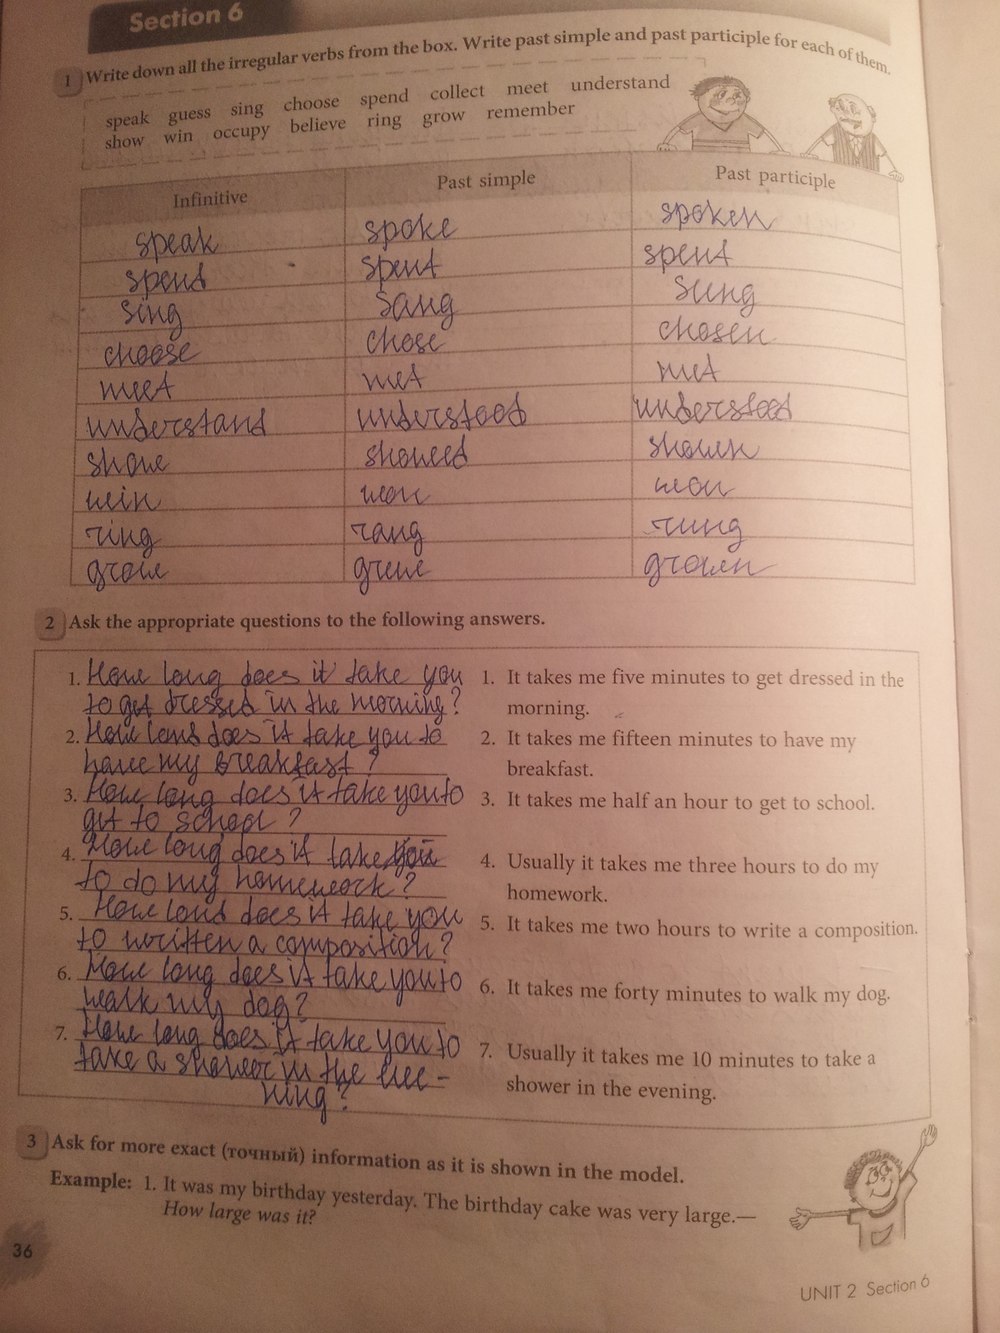 Section 6
1 Write down all the irregular verbs from the box. Write past simple and past participle for each of them.
speak guess sing choose spend collect meet understand
show win occupy believe ring grow remember
Infinitive Past simple Past participle
speak spoke spoken
spend spent spent
sing sang sung
choose chose chosen
meet met met
understand understood understood
show showed shown
win won won
ring rang rung
grow grew grown
2 Ask the appropriate questions to the following answers.
1. How long does it take you
to get dressed in the morning?
1. It takes me five minutes to get dressed in the
morning.
2. How lond does it take you to
have my breakfast?
2. It takes me fifteen minutes to have my
breakfast.
3. How long does it take you to
get to school?
3. It takes me half an hour to get to school.
4. How long does it take you
to do my homework?
4. Usually it takes me three hours to do my
homework.
5. How lond does it take you
to written a composition?
5. It takes me two hours to write a composition.
6. How long does it take you to
walk my dog?
6. It takes me forty minutes to walk my dog.
7. How long does it take you to
take a shower in the eve-
ning?
7. Usually it takes me 10 minutes to take a
shower in the evening.
3 Ask for more exact (точный) information as it is shown in the model.
Example: 1. It was my birthday yesterday. The birthday cake was very large.—
How large was it?
36
UNIT 2 Section 6